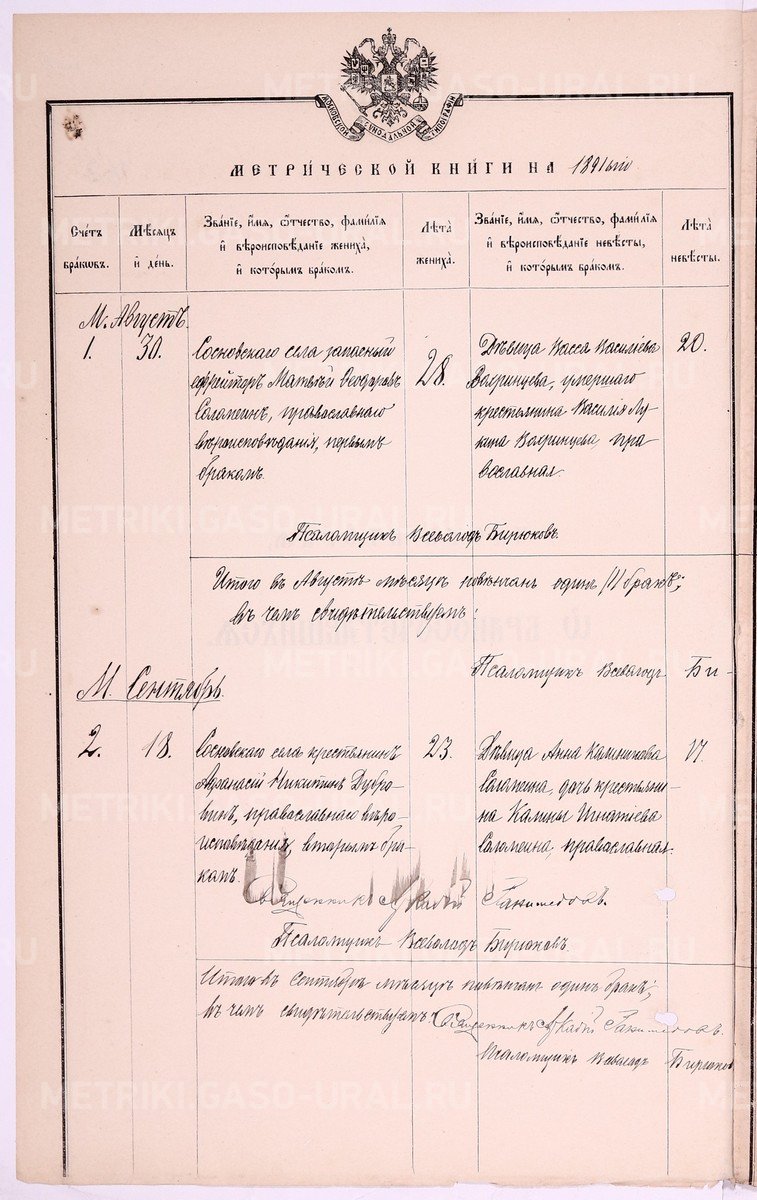 МОСКОВСКОЙ СИНОДАЛЬНОЙ ТИПОГРАФІИ
МЕТРИ́ЧЕСКОЙ КНИ́ГИ НА 1891ый
Счетъ браковъ.
Мѣсяцъ и день.
Званіе, имя, отчество, фамилія и вѣроисповѣданіе жениха, и которымъ бракомъ.
Лѣта жениха.
Званіе, имя, отчество, фамилія и вѣроисповѣданіе невѣсты, и которымъ бракомъ.
Лѣта невѣсты.
М. Августъ.
1. 30.
Сосновскаго села запасный
ефрейторъ Матѳій Ѳеодоровъ
Саламеинъ, православнаго
вѣроисповѣданія, первымъ
бракомъ.
28.
Дѣвица Васса Васильева
умершаго
крестьянина Василія Лу
кина православная
20.
Псаломщикъ Всеволодъ Бирюковъ.
Итого въ Августѣ мѣсяцѣ повѣнчанъ одинъ /1/ бракъ;
въ чемъ свидѣтельствуемъ:
Псаломщикъ Всеволодъ Би-
М. Сентябрь
2. 18.
Сосновскаго села крестьянинъ
Аѳанасій Никитинъ Дубро
винъ, православнаго вѣро
исповѣданія, вторымъ бра
комъ.
23.
Дѣвица Анна Калиникова
Саламеина, дочь крестьяни
на Калины Игнатіева
Саламеина, православная.
17.
Священникъ Аркадій
Псаломщикъ Всеволодъ Бирюковъ.
Итого въ Сентябрѣ мѣсяцѣ повѣнчанъ одинъ бракъ;
въ чемъ свидѣтельствуемъ: Священникъ Аркадій
Псаломщикъ Всеволодъ Бирюковъ
METRIKI.GASO-URAL.RU